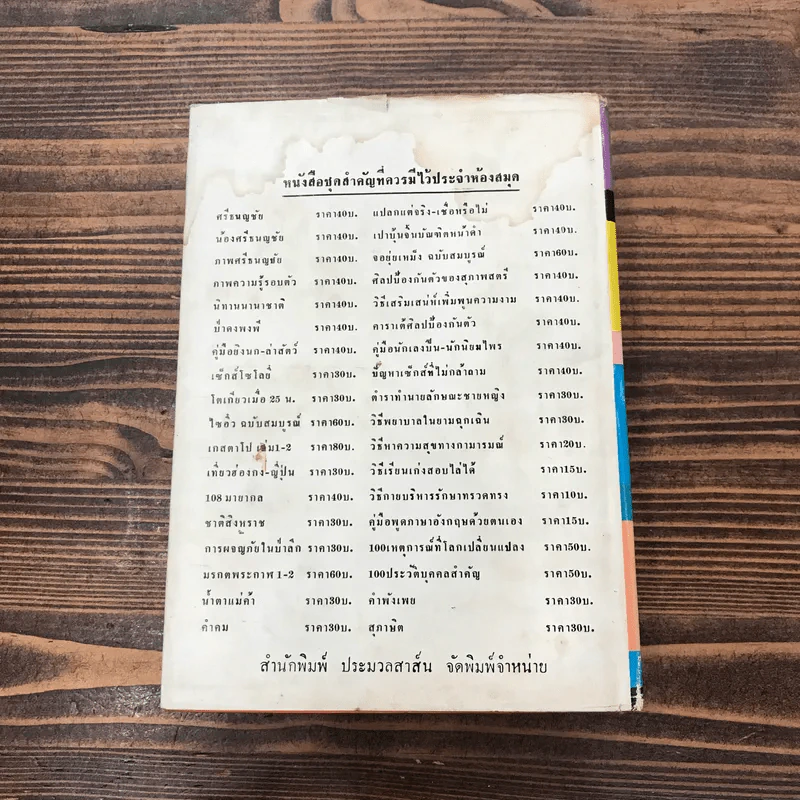 หนังสือชุดสำคัญที่ควรมีไว้ประจำห้องสมุด
ศรีธนญชัย ราคา40บ. แปลกแต่จริง-เชื่อหรือไม่ ราคา40บ.
น้องศรีธนญชัย ราคา40บ. เปาบุ้นจิ้นบัณฑิตหน้าดำ ราคา40บ.
ภาพศรีธนญชัย ราคา40บ. จอยุ่ยเหม็ง ฉบับสมบูรณ์ ราคา60บ.
ภาพความรู้รอบตัว ราคา40บ. ศิลปป้องกันตัวของสุภาพสตรี ราคา40บ.
นิทานนานาชาติ ราคา40บ. วิธีเสริมเสน่ห์เพิ่มพูนความงาม ราคา40บ.
ป่าดงพงพี ราคา40บ. คาราเต้ศิลปป้องกันตัว ราคา40บ.
คู่มือยิงนก-ล่าสัตว์ ราคา40บ. คู่มือนักเลงปืน-นักนิยมไพร ราคา40บ.
เซ็กส์โซโลยี่ ราคา30บ. ปัญหาเซ็กส์ที่ไม่กล้าถาม ราคา40บ.
โตเกียวเมื่อ 25 น. ราคา30บ. ตำราทำนายลักษณะชายหญิง ราคา30บ.
ไซอิ๋ว ฉบับสมบูรณ์ ราคา60บ. วิธีพยาบาลในยามฉุกเฉิน ราคา30บ.
เกสตาโป เล่ม1-2 ราคา80บ. วิธีหาความสุขทางกามารมณ์ ราคา20บ.
เที่ยวฮ่องกง-ญี่ปุ่น ราคา30บ. วิธีเรียนเก่งสอบไล่ได้ ราคา15บ.
108 มายากล ราคา40บ. วิธีกายบริหารรักษาทรวดทรง ราคา10บ.
ชาติสิงหราช ราคา30บ. คู่มือพูดภาษาอังกฤษด้วยตนเอง ราคา15บ.
การผจญภัยในป่าลึก ราคา30บ. 100เหตุการณ์ที่โลกเปลี่ยนแปลง ราคา50บ.
มรกตพระกาฬ 1-2 ราคา60บ. 100ประวัติบุคคลสำคัญ ราคา50บ.
น้ำตาแม่ค้า ราคา30บ. คำพังเพย ราคา30บ.
คำคม ราคา30บ. สุภาษิต ราคา30บ.
สำนักพิมพ์ ประมวลสาส์น จัดพิมพ์จำหน่าย